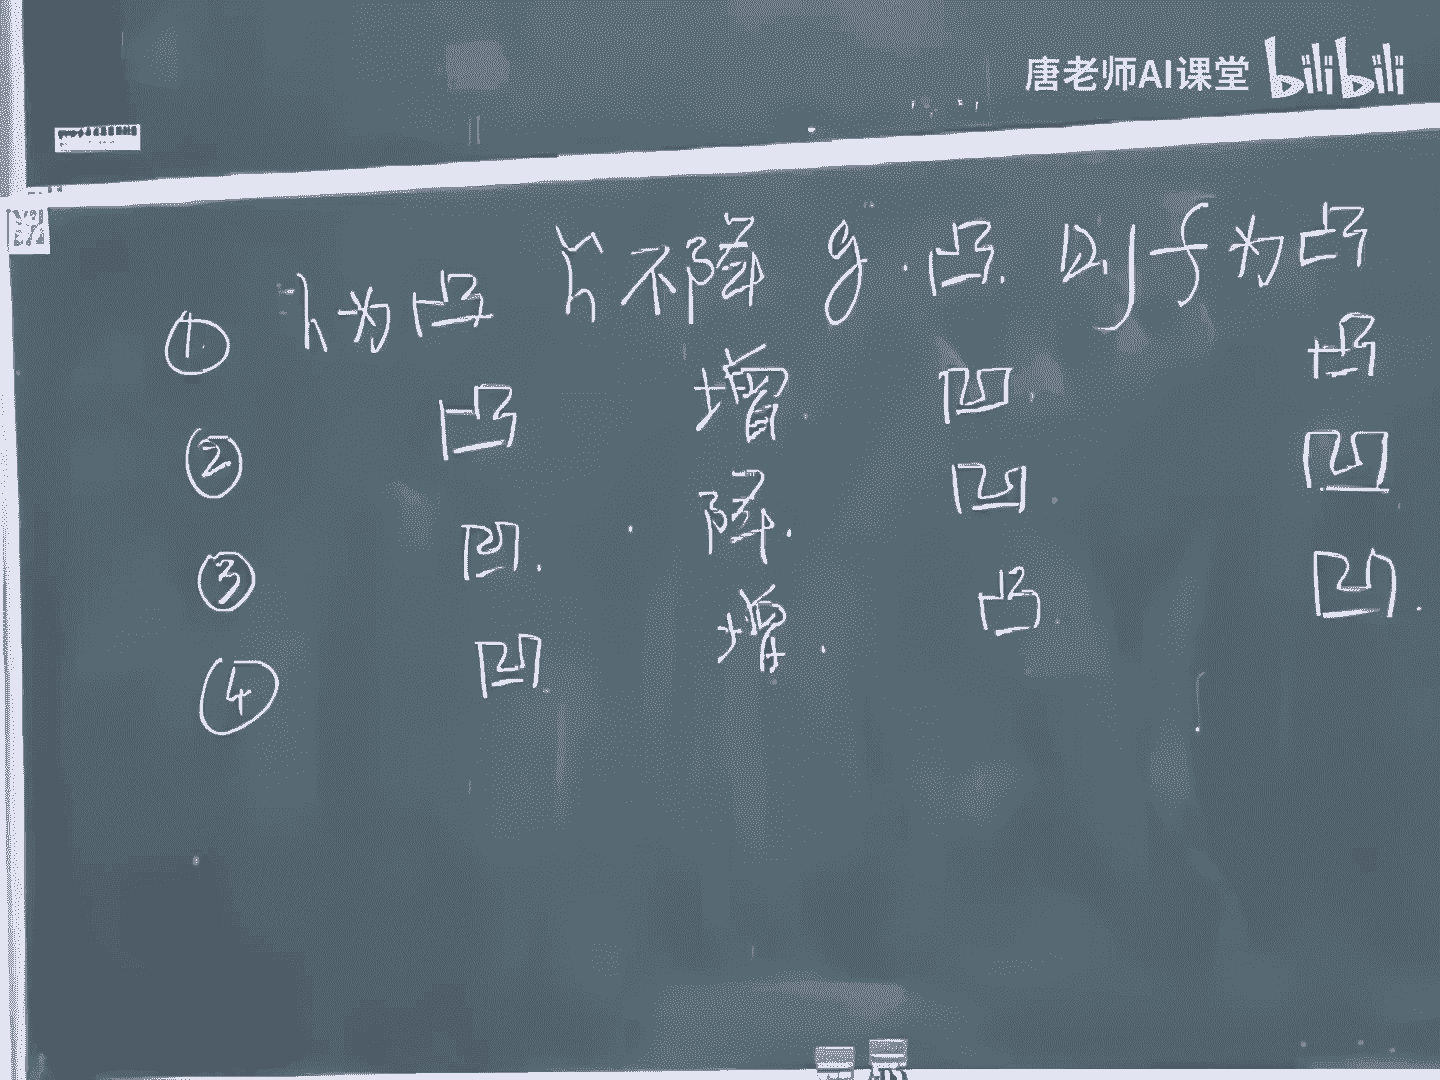 唐老师AI课堂 bilibili
① h为凸 h不降 g.凸. 则f为凸
② 凸 增. 凹. 凸
③ 凹. 降. 凹 凹
④ 凹 增. 凸. 凹.